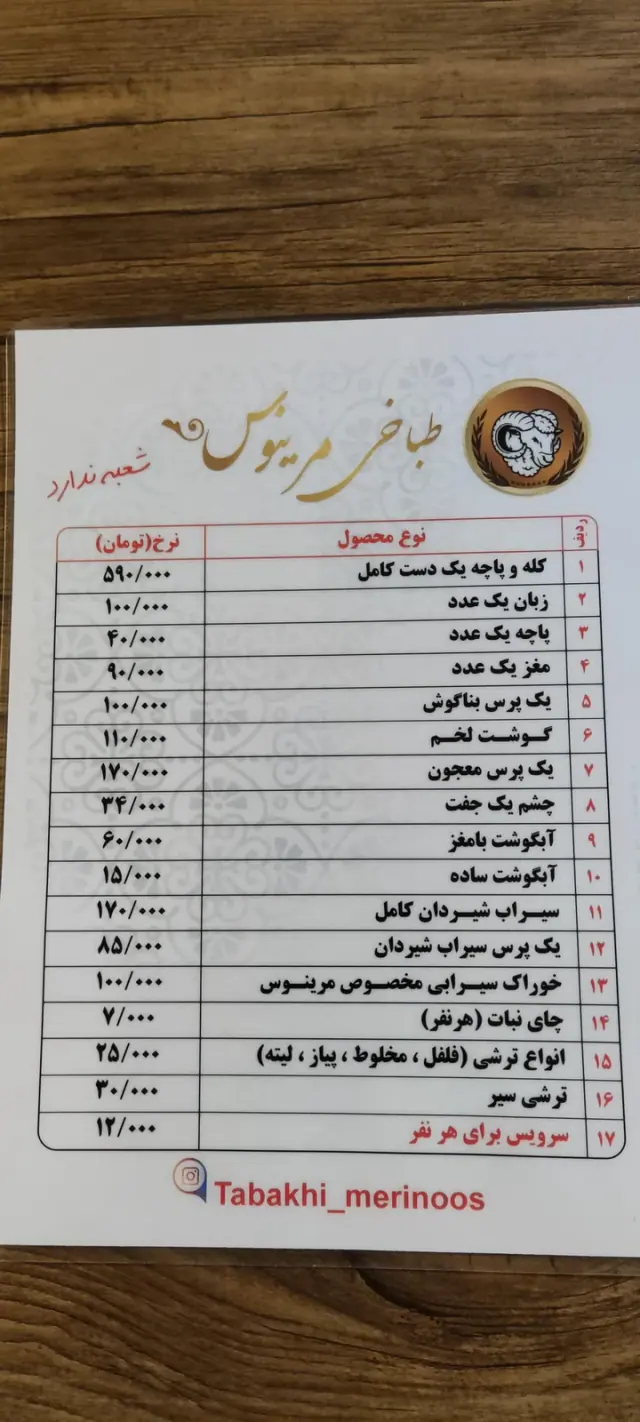 طباخی مرینوس
شعبه ندارد
ردیف نوع محصول نرخ(تومان)
۱ کله و پاچه یک دست کامل ۵۹۰/۰۰۰
۲ زبان یک عدد ۱۰۰/۰۰۰
۳ پاچه یک عدد ۴۰/۰۰۰
۴ مغز یک عدد ۹۰/۰۰۰
۵ یک پرس بناگوش ۱۰۰/۰۰۰
۶ گـوشـت لخـم ۱۱۰/۰۰۰
۷ یک پرس معجون ۱۷۰/۰۰۰
۸ چشم یک جفت ۳۴/۰۰۰
۹ آبگوشت بامغز ۶۰/۰۰۰
۱۰ آبگوشت ساده ۱۵/۰۰۰
۱۱ سیـراب شیـردان کامل ۱۷۰/۰۰۰
۱۲ یک پرس سیراب شیردان ۸۵/۰۰۰
۱۳ خوراک سیـرابی مخصـوص مرینـوس ۱۰۰/۰۰۰
۱۴ چای نبات (هرنفر) ۷/۰۰۰
۱۵ انواع ترشی (فلفل ، مخلوط ، پیاز ، لیته) ۲۵/۰۰۰
۱۶ ترشی سیر ۳۰/۰۰۰
۱۷ سرویس برای هر نفر ۱۲/۰۰۰
Tabakhi_merinoos